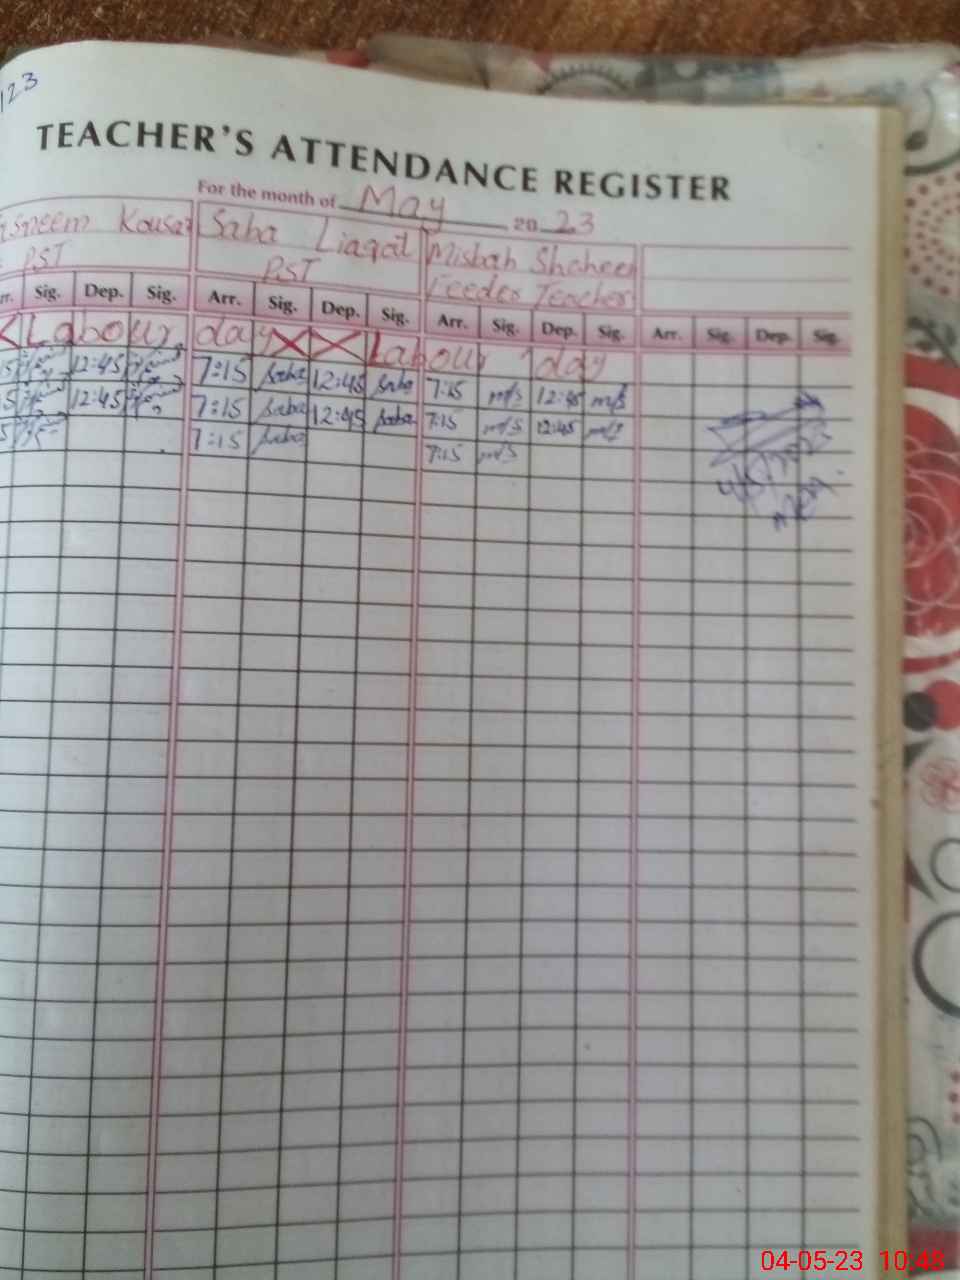 123
TEACHER'S ATTENDANCE REGISTER
For the month of May 2023
Kousar Saba Liaqat Misbah Shaheen
PST PST Feeder Teacher
Sig. Dep. Sig. Arr. Sig. Dep. Sig. Arr. Sig. Dep. Sig. Arr. Sig. Dep. Sig.
Labour day Labour day
12:45 7:15 Saba 12:45 Saba 7:15 m/S 12:45 m/S
12:45 7:15 Saba 12:45 Saba 7:15 m/S 12:45 m/S
7:15 Saba 7:15 m/S
4/5/2023
04-05-23 10:48